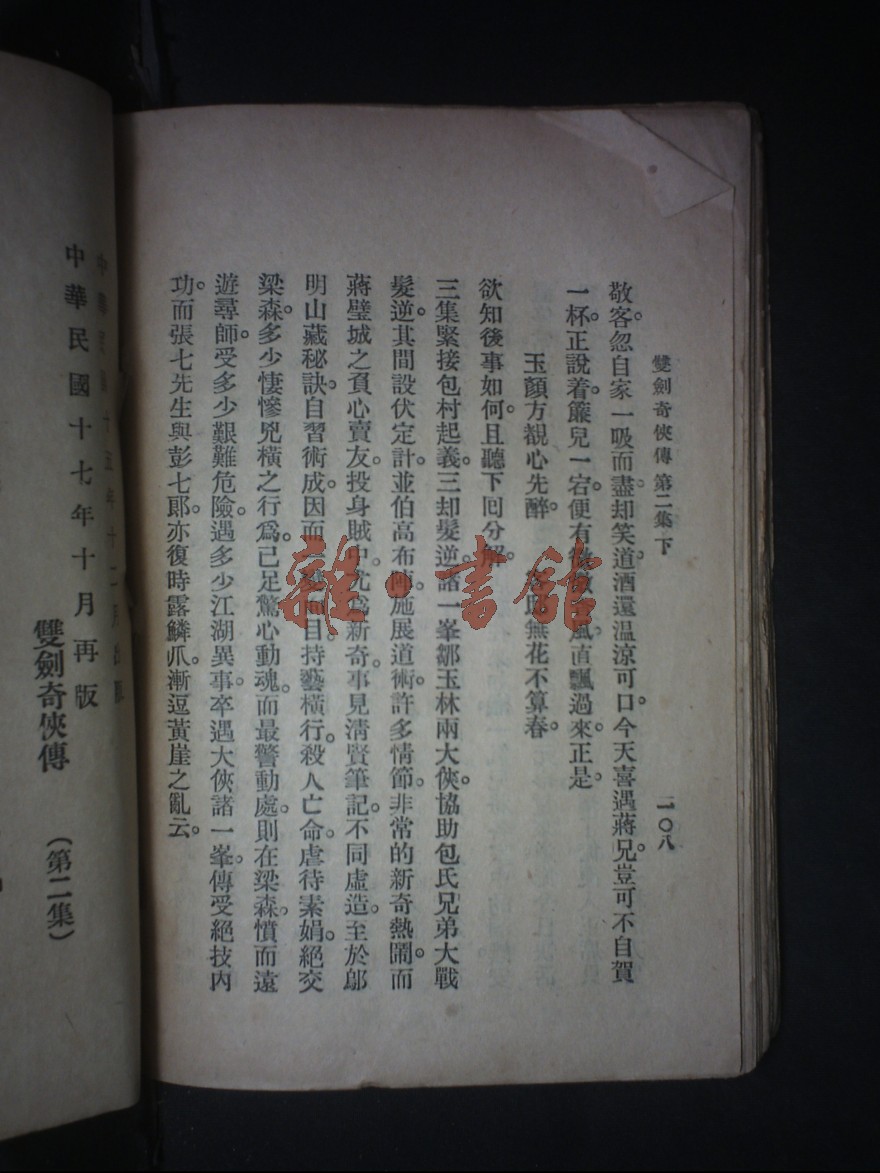 雙劍奇俠傳 第二集下
一〇八
敬客。忽自家一吸而盡。却笑道酒還温凉可口。今天喜遇蔣兄。豈可不自賀
一杯。正說着簾兒一宕。便有 風直飄過來。正是
玉顏方覩心先醉 無花不算春。
欲知後事如何。且聽下回分解。
三集緊接包村起義。三却髮逆。諸一峯鄒玉林兩大俠。協助包氏兄弟大戰
髮逆。其間設伏定計。並伯高布陣。施展道術。許多情節。非常的新奇熱鬧。而
蔣璧城之負心賣友。投身賊中。尤爲新奇。事見淸賢筆記。不同虛造。至於鄔
明山藏秘訣。自習術成。因而 面目。持藝橫行。殺人亡命。虐待素娟。絕交
梁森。多少悽慘兇橫之行爲。已足驚心動魂。而最警動處。則在梁森憤而遠
遊尋師。受多少艱難危險。遇多少江湖異事。卒遇大俠諸一峯。傳受絕技內
功。而張七先生與彭七郞。亦復時露鱗爪。漸逗黃崖之亂云。
雜·書館
中華民國十七年十月再版
雙劍奇俠傳 (第二集)